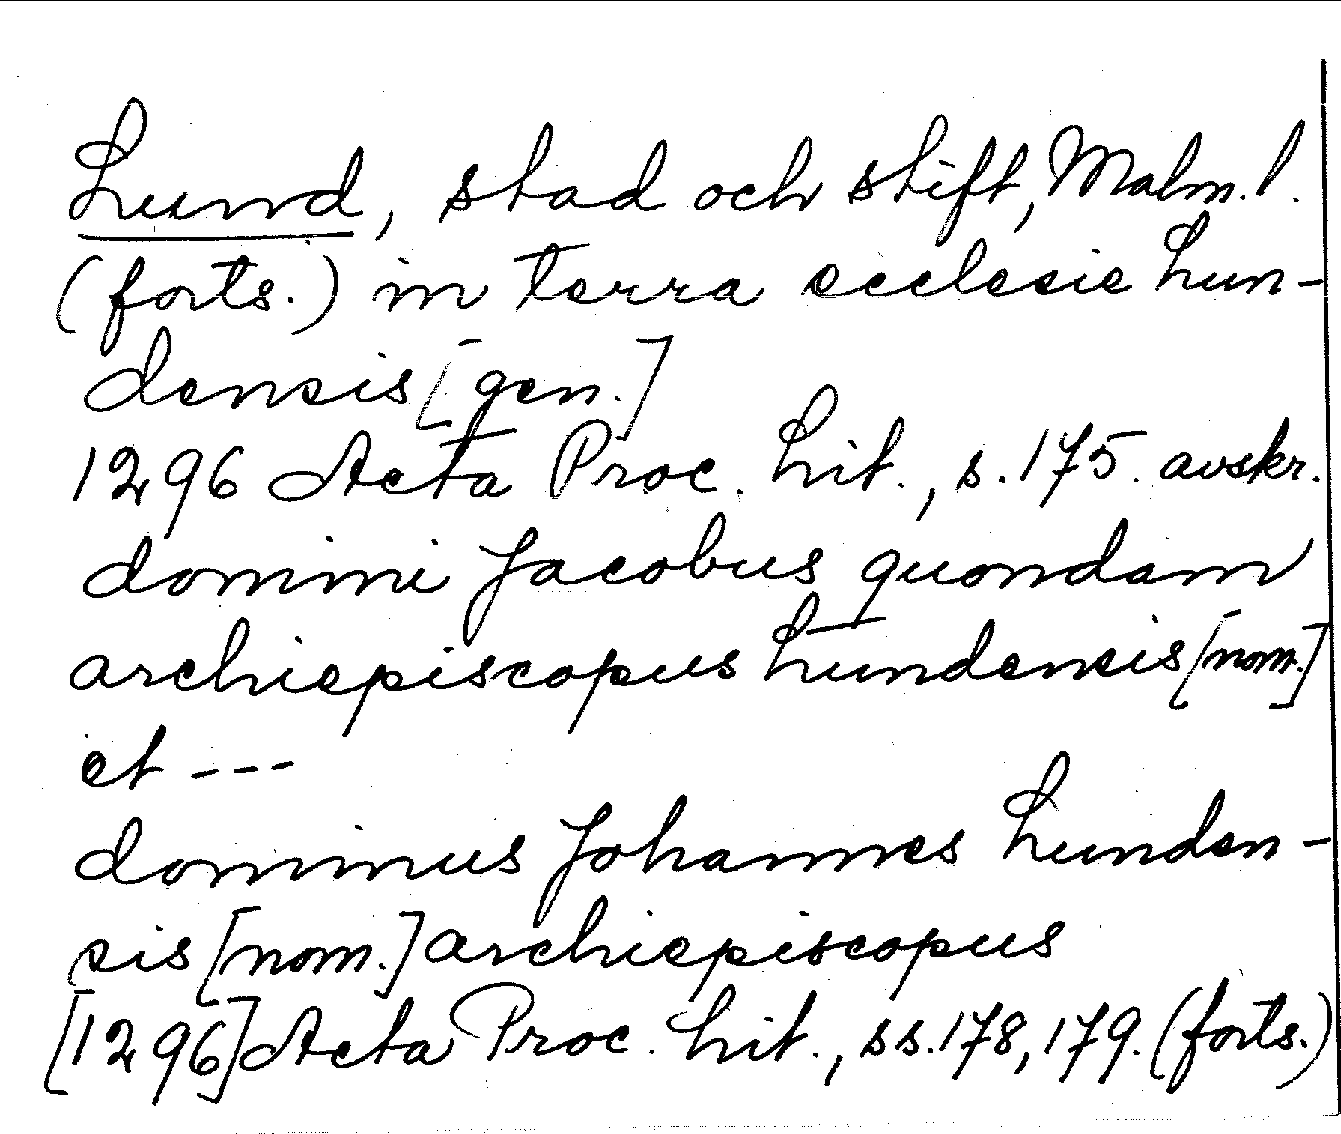 Lund, stad och stift, Malm. l.
(forts.) in terra ecclesie Lun-
densis [gen.]
1296 Acta Proc. Lit., s. 175. avskr.
domini Jacobus quondam
archiepiscopus Lundensis [nom.]
et ---
dominus Johannes Lunden-
sis [nom.] archiepiscopus
[1296] Acta Proc. Lit., ss. 178, 179. (forts.)